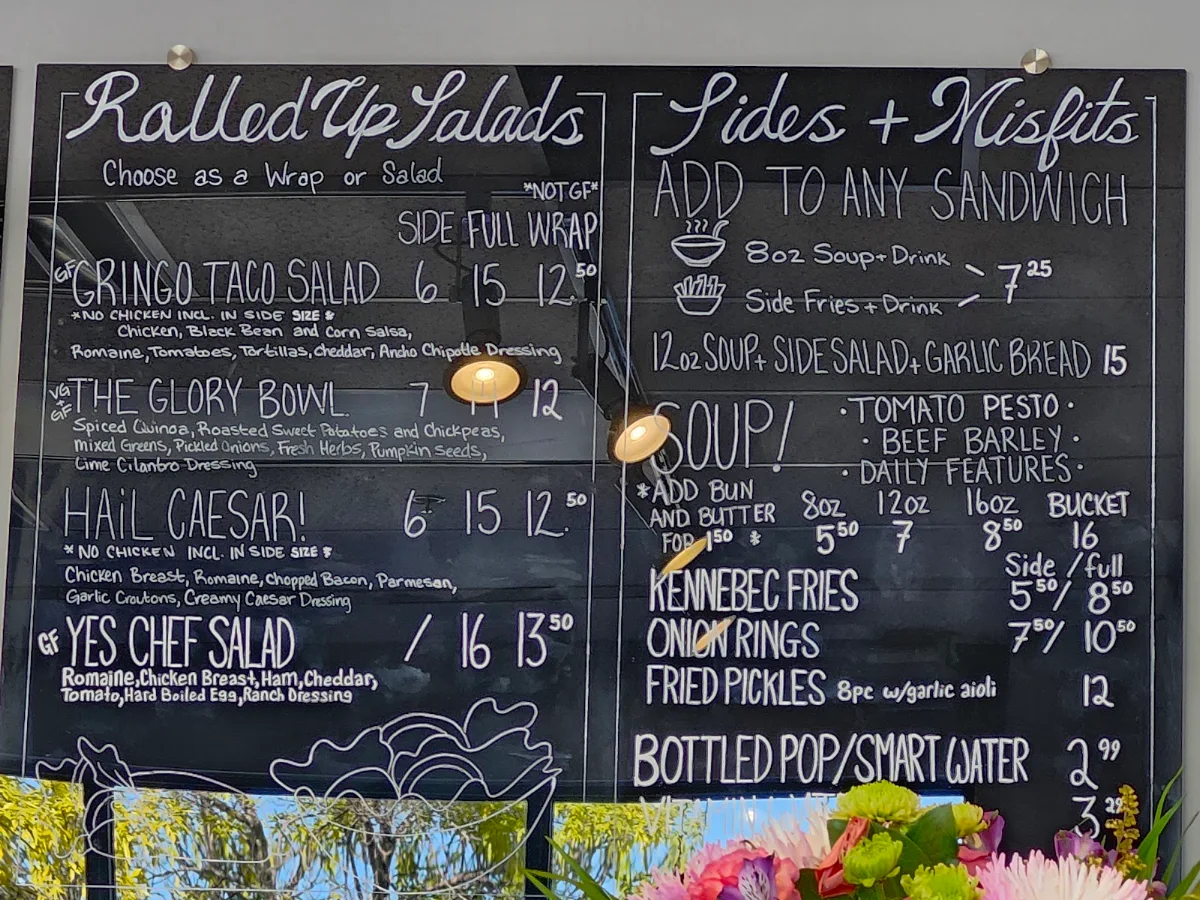 Rolled Up Salads
Choose as a Wrap or Salad
*NOT GF*
SIDE FULL WRAP
GF GRINGO TACO SALAD 6 15 12.50
*NO CHICKEN INCL. IN SIDE SIZE*
Chicken, Black Bean and Corn Salsa,
Romaine, Tomatoes, Tortillas, cheddar, Ancho Chipotle Dressing
VG + GF THE GLORY BOWL 7 12
Spiced Quinoa, Roasted Sweet Potatoes and Chickpeas,
mixed Greens, Pickled Onions, Fresh Herbs, Pumpkin Seeds,
Lime Cilantro Dressing
HAIL CAESAR! 6 15 12.50
*NO CHICKEN INCL. IN SIDE SIZE*
Chicken Breast, Romaine, chopped Bacon, Parmesan,
Garlic Croutons, Creamy Caesar Dressing
GF YES CHEF SALAD / 16 13 50
Romaine, Chicken Breast, Ham, Cheddar,
Tomato, Hard Boiled Egg, Ranch Dressing
Sides + Misfits
ADD TO ANY SANDWICH
8oz Soup + Drink
7 25
Side Fries + Drink
12oz SOUP + SIDE SALAD + GARLIC BREAD 15
SOUP!
· TOMATO PESTO ·
· BEEF BARLEY ·
· DAILY FEATURES ·
*ADD BUN
AND BUTTER
FOR 1 50 *
8oz 12oz 16oz BUCKET
5 50 7 8 50 16
Side / full
KENNEBEC FRIES 5 50 / 8 50
ONION RINGS 7 50 / 10 50
FRIED PICKLES 8pc w/garlic aioli 12
BOTTLED POP/SMART WATER 2 99
3